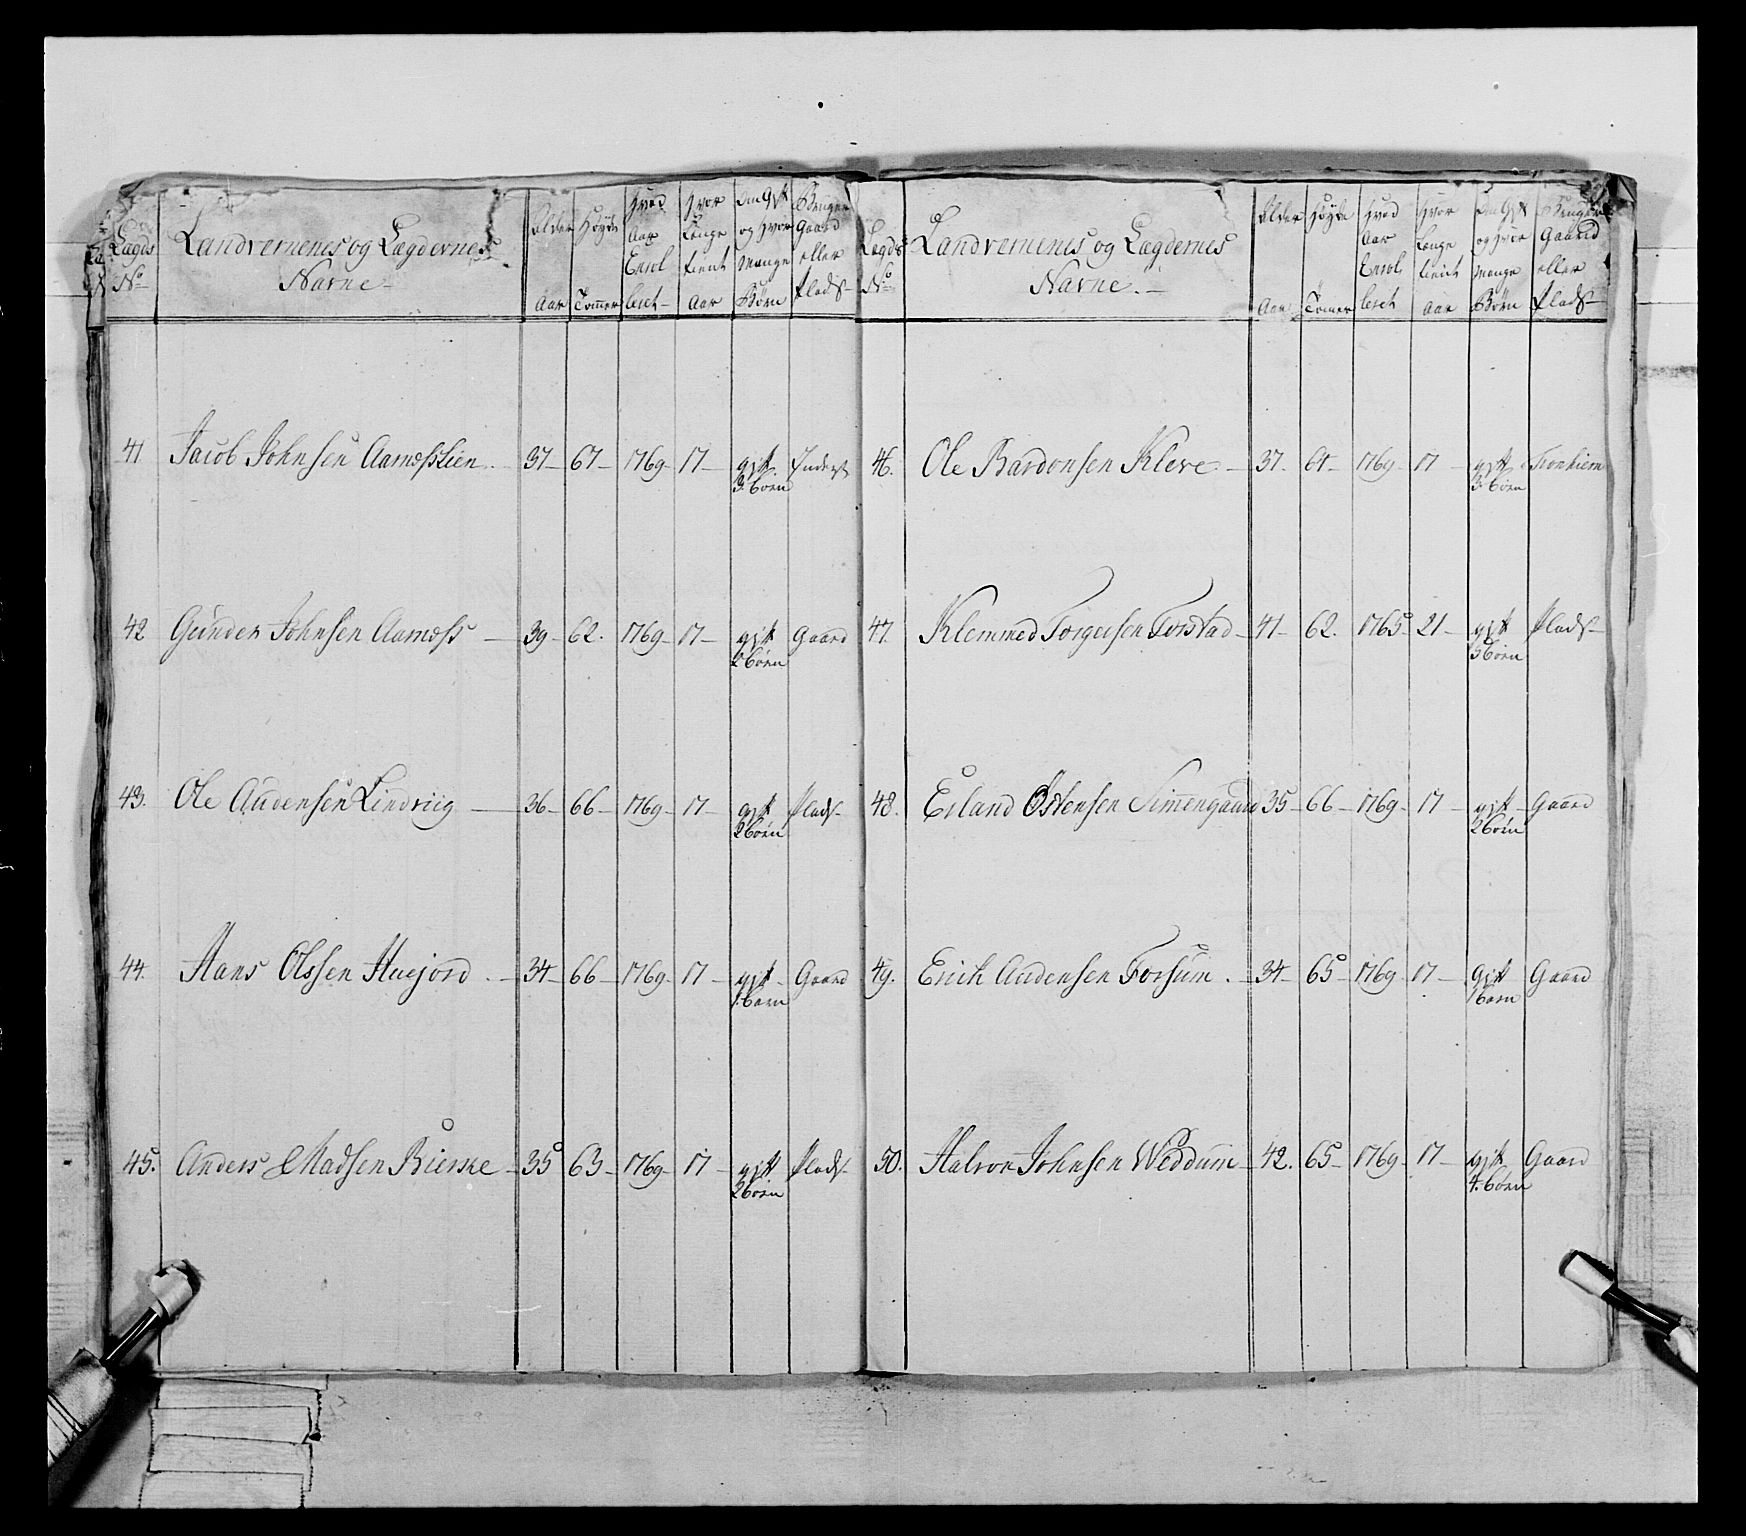 Lægds No | Landvernenes og Lægdernes Navne | Alder Aar | Høyde Tommer | Hvad Aar Enrolleret | Hvor Længe tient Aar | Om Gift og Hvor Mange Børn | Bruger Gaard eller Plads
41 Jacob Johnsen Aamoeslien 37 67 1769 17 gift 3 børn Inderst
42 Gunder Johnsen Aamoess 39 62 1769 17 gift 2 børn Gaard
43. Ole Audensen Lindviig 36 66 1769 17 gift 2 børn Plads
44. Hans Olssen Huejord 34 66 1769 17 gift 1 barn Gaard
45. Anders Madsen Bierske 35 63 1769 17 gift 2 børn Plads
Lægds No | Landvernenes og Lægdernes Navne | Alder Aar | Høyde Tomer | Hvad Aar Enrolleret | Hvor Længe tient Aar | Om Gift og Hvor Mange Børn | Bruger Gaard eller Plads
46. Ole Bardonsen Kleve 37. 1769 17 gift 3 børn Tronhiem
47. Klemmed Torgersen Torstad 41 62. 1765 21 gift 3 børn Plads
48. Erland Østensen Simengaard 35 66 1769 17 gift 2 børn Gaard
49. Erich Audensen Forsum 34 65 1769 17 Gift 1 barn Gaard
50. Halvor Johnsen Weddum 42. 65 1769 17 gift 4 børn Gaard